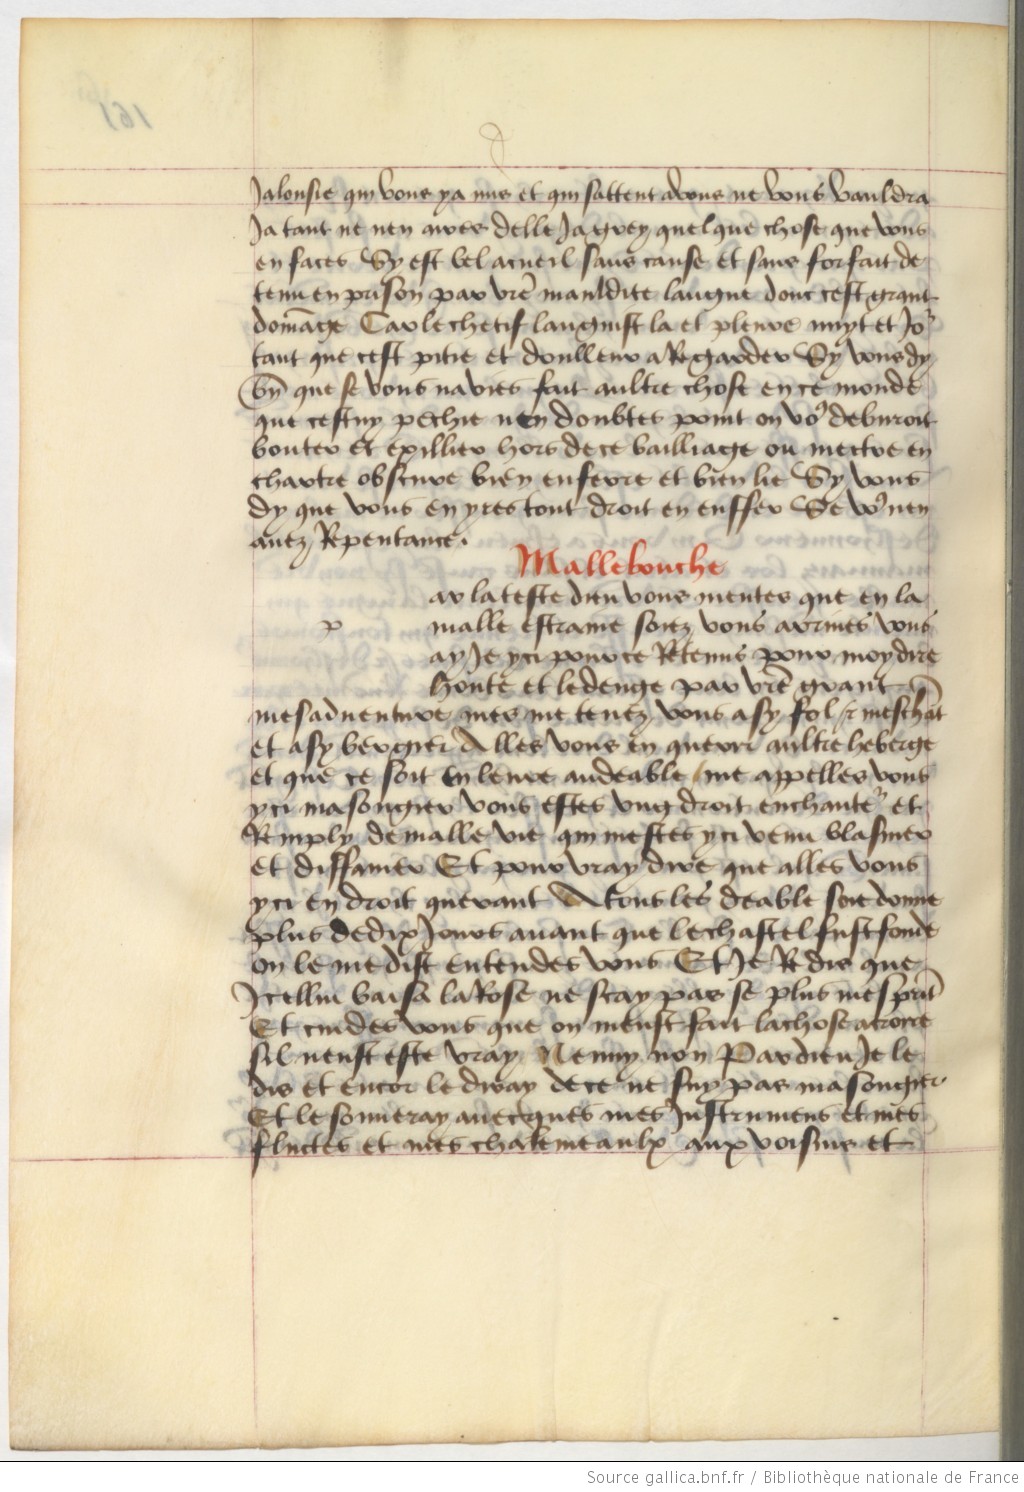 Jalousie qui vous ya mis et qui sattent avous ne vous vauldra
Ja tant ne nen aves delle Ja grey quelque chose que vous
en faces Sy est bel acueil sans cause et sans forfait de
tenu en prison par vr̄e mauldite langue donc cest grant
dom̄age Car le chetif languist la et pleure nuyt et Jo'
tant que cest pitie et doulleur a Regarder Sy vous dy
bn̄ que se vous navies fait aultre chose en ce monde
que cestuy pechie nen doubtes point on vo9 deburoit
bouter et exillier hors de ce bailliage ou mectre en
chartre obscure bien enferre et bien lie Sy vous
dy que vous en yres tout droit en enffer Se vo9 nen
auez Repentance.
Mallebouche
p
ar la teste dieu vous mentes que en la
malle estraine soiez vous arrives vous
ay Je yci pour ce Retenus pour moy dire
honte et ledenge par vr̄e grant
mesaduenture mes me tenez vous asy fol et meschāt
et asy bergier Alles vous en querir aultre heberge
et que ce soit en leure audeable me appelles vous
yci masongier vous estes ung droit enchante' et
Remply de malle vie qui mestes yci venu blasmer
et diffamer Et pour vray dire que alles vous
yci en droit querant A tous les deable soie donne
plus de dix Jours auant que le chastel fust fonde
on le me dist entendes vous Et Je Redis que
Jcelluy baisa la Rose ne scay pas se plus mesprīt
Et cuides vous que on meust fait la chose acroire
sil neust este vray Nenny non Par dieu Je le
dis et encor le diray de ce ne suy pas masongier
Et le sonneray auecques mes Instrumens et mes
fluctes et mes chalemeaulx aux voisins et
161
Source gallica.bnf.fr / Bibliothèque nationale de France